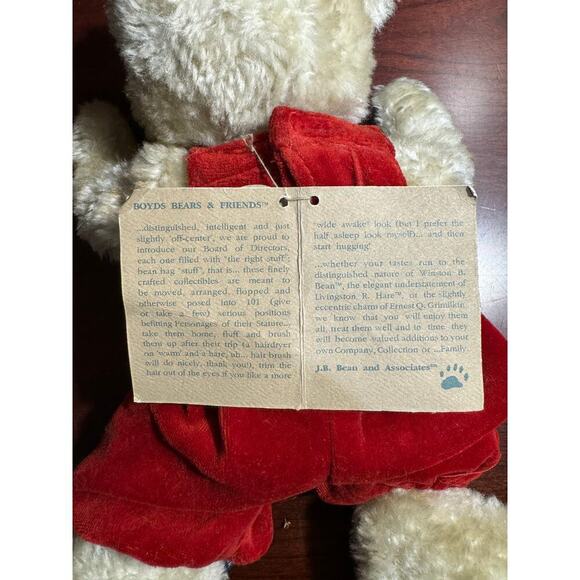 BOYDS BEARS & FRIENDS™
...distinguished, intelligent and just
slightly 'off-center', we are proud to
introduce our Board of Directors,
each one filled with 'the right stuff';
bean bag 'stuff', that is... these finely
crafted collectibles are meant to
be moved, arranged, flopped and
otherwise posed into 101 (give
or take a few) serious positions
befitting Personages of their Stature...
take them home, fluff and brush
them up after their trip (a hairdryer
on 'warm' and a hare, uh... hair brush
will do nicely, thank you!), trim the
hair out of the eyes if you like a more
'wide awake' look (but I prefer the
half asleep look myself)... and then
start hugging!
...whether your tastes run to the
distinguished nature of Winston B.
Bean™, the elegant understatement of
Livingston R. Hare™, or the slightly
eccentric charm of Ernest Q. Grimilkin
we know that you will enjoy them
all, treat them well and in time they
will become valued additions to your
own Company, Collection or ...Family.
J.B. Bean and Associates™